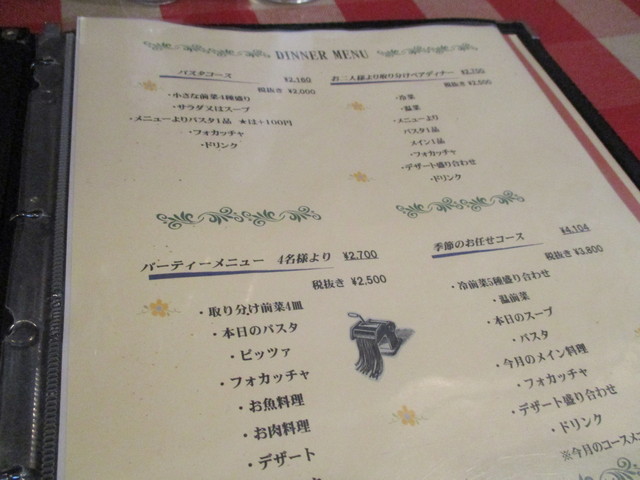 DINNER MENU
パスタコース ¥2,160
税抜き ¥2,000
・小さな前菜4種盛り
・サラダ又はスープ
・メニューよりパスタ1品 ★は+100円
・フォカッチャ
・ドリンク
お二人様より取り分けペアディナー ¥2,700
税抜き ¥2,500
・冷菜
・温菜
・メニューより
パスタ1品
メイン1品
・フォカッチャ
・デザート盛り合わせ
・ドリンク
パーティーメニュー 4名様より ¥2,700
税抜き ¥2,500
・取り分け前菜4皿
・本日のパスタ
・ピッツァ
・フォカッチャ
・お魚料理
・お肉料理
・デザート
季節のお任せコース ¥4,104
税抜き ¥3,800
・冷前菜5種盛り合わせ
・温前菜
・本日のスープ
・パスタ
・今月のメイン料理
・フォカッチャ
・デザート盛り合わせ
・ドリンク
※今月のコースメニ